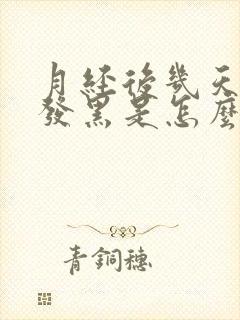 月經後幾天
發黑是怎麼
青銅穗